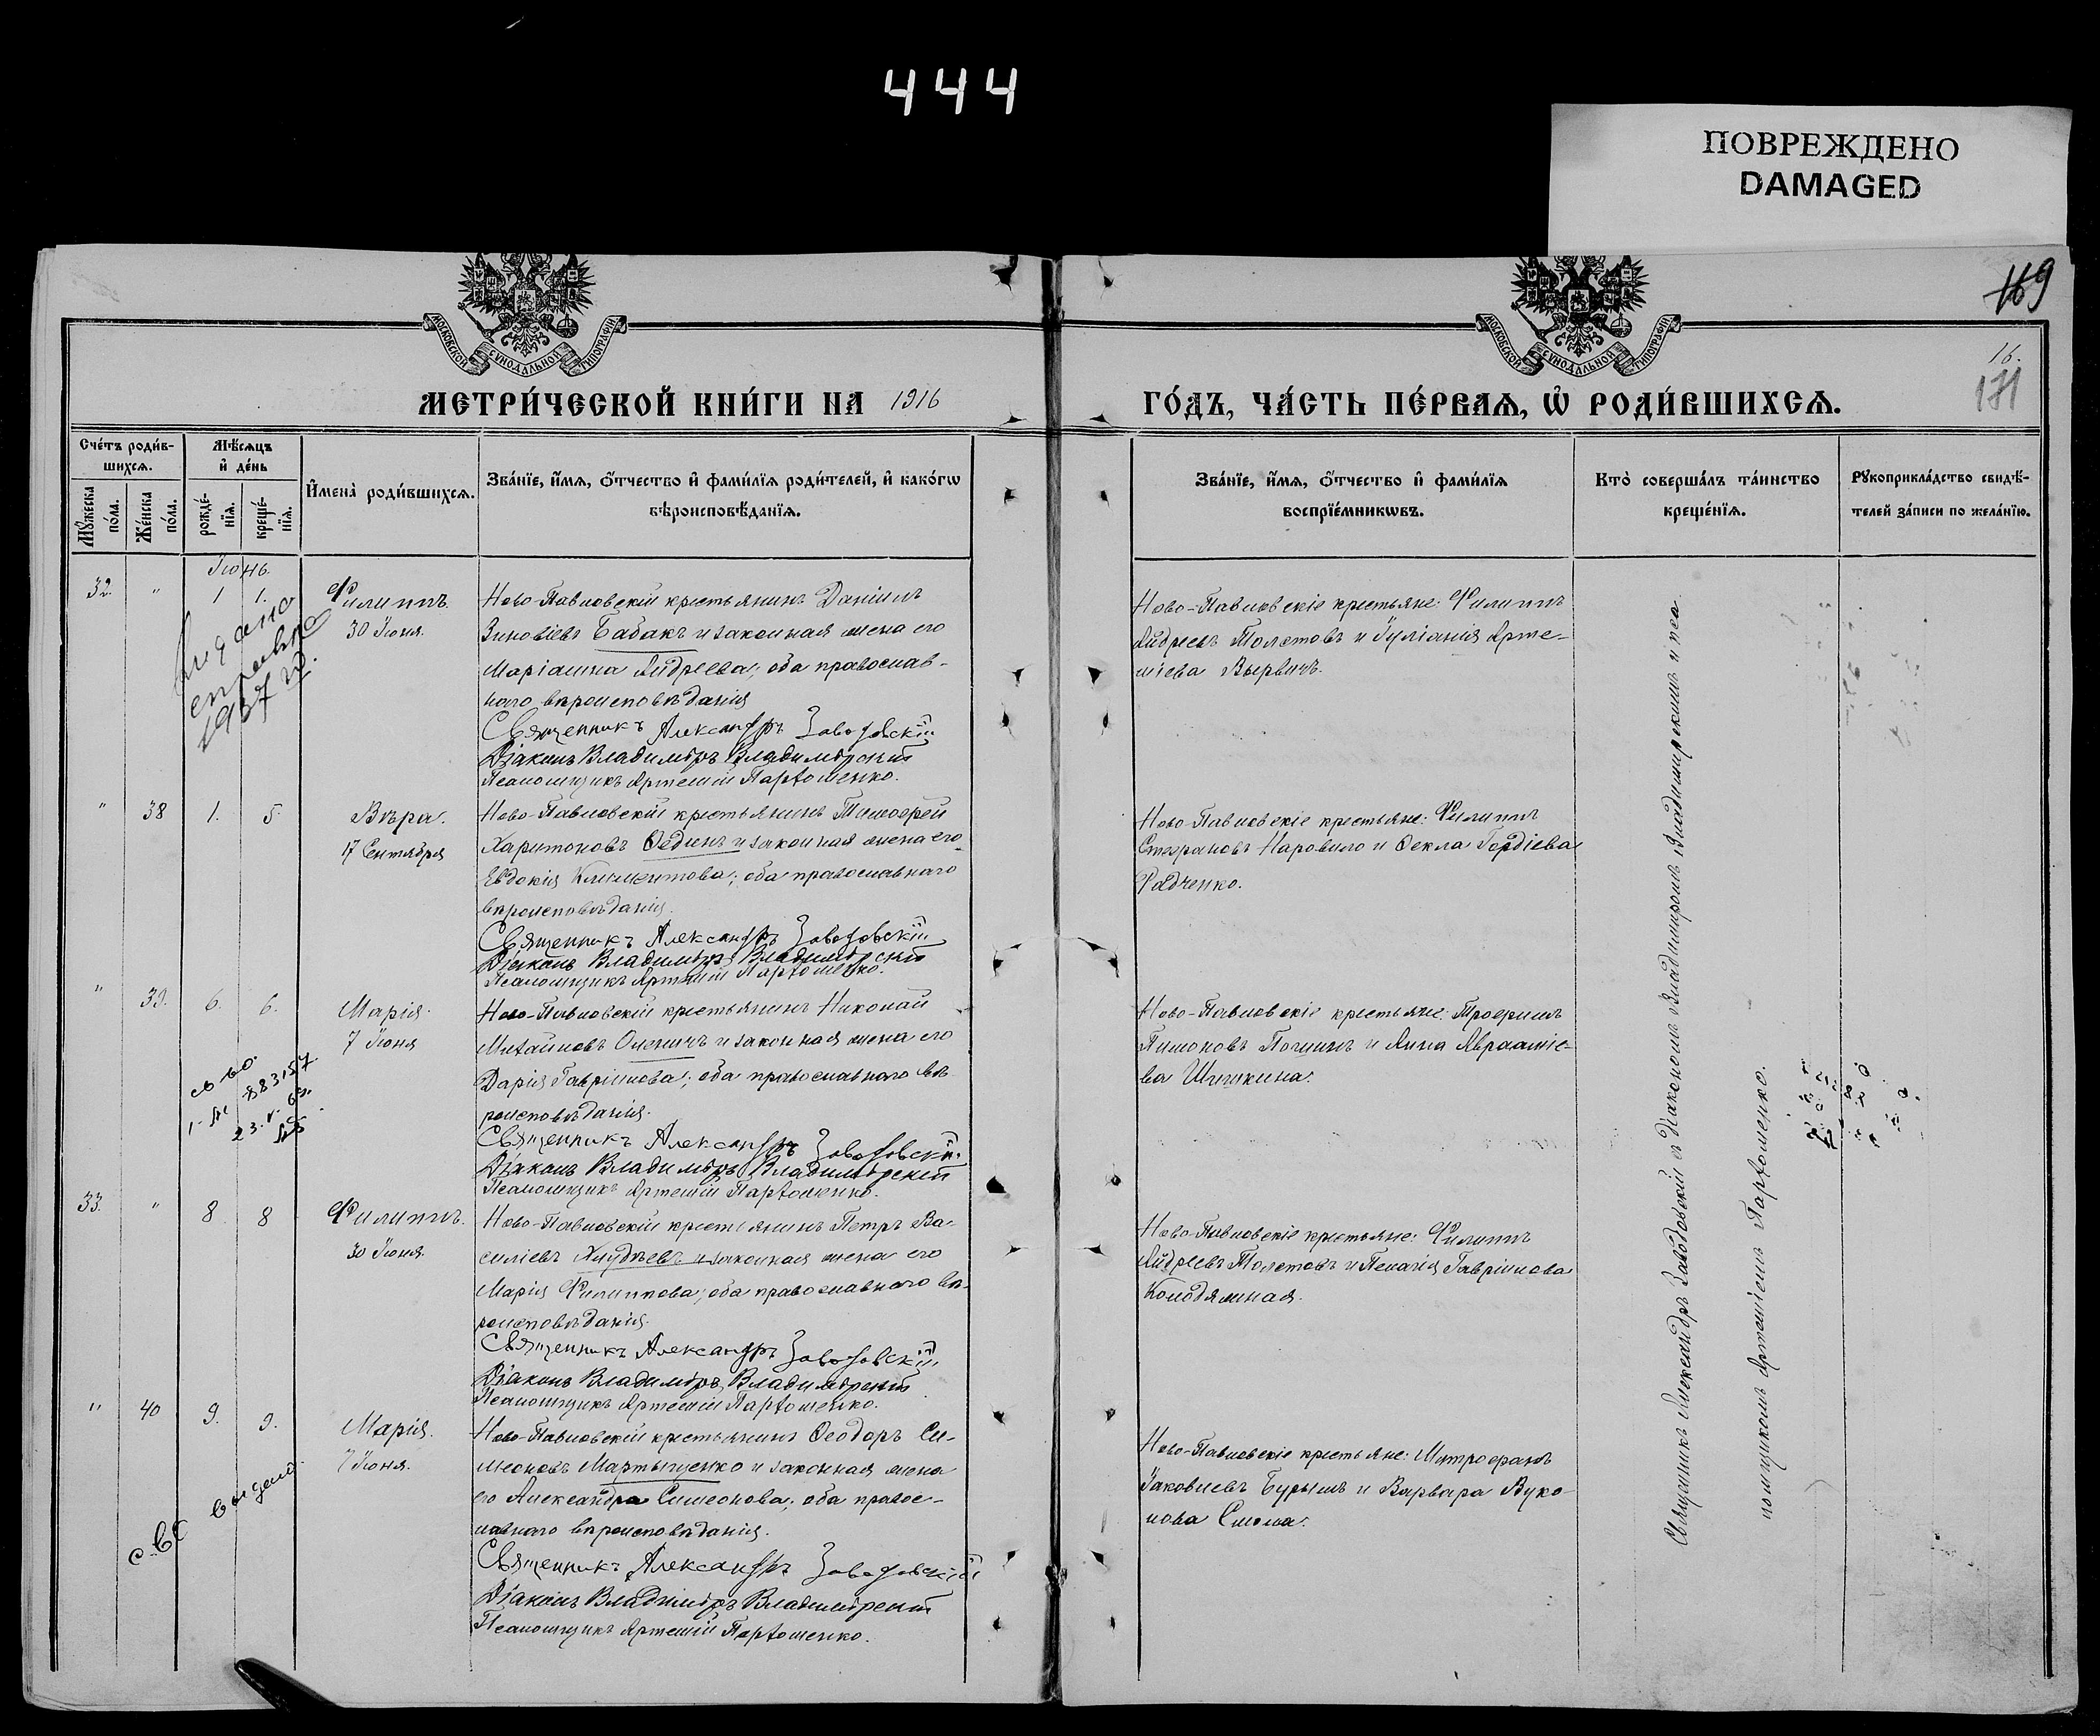 444
ПОВРЕЖДЕНО
DAMAGED
169
16.
171
МОСКОВСКОЙ СѴНОДАЛЬНОЙ ТИПОГРАФІИ
МОСКОВСКОЙ СѴНОДАЛЬНОЙ ТИПОГРАФІИ
МЕТРИ́ЧЕСКОЙ КНИ́ГИ НА 1916
ГО́ДЪ, ЧА́СТЬ ПЕ́РВАѦ, Ѡ҆ РОДИ́ВШИХСѦ.
Сче́тъ роди́в-
шихсѧ.
Мꙋ́жеска по́ла.
Же́нска по́ла.
Мѣ́сѧцъ
и҆ де́нь
рожде́-
нїѧ.
креще́-
нїѧ.
И҆мена̀ роди́вшихсѧ.
Зва́нїе, и҆́мѧ, ѻ҆́тчество и҆ фами́лїѧ роди́телей, и҆ како́гѡ
вѣроисповѣ́данїѧ.
Зва́нїе, и҆́мѧ, ѻ҆́тчество и҆ фами́лїѧ
воспрїе́мникѡвъ.
Кто̀ соверша́лъ та́инство
креще́нїѧ.
Рꙋкоприкла́дство свидѣ́-
телей за́писи по жела́нїю.
Іюнь.
32. " 1 1.
Филиппъ.
30 Іюня.
Выдана
справка
1937 г.
Ново-Павловскій крестьянинъ Даніилъ
Зиновіевъ Бабакъ и законная жена его
Маріанна Андреева; оба православ-
наго вѣроисповѣданія
Священникъ Александръ Заводовскій
Діаконъ Владиміръ Владимірскій
Псаломщикъ Артемій Пархоменко.
Ново-Павловскіе крестьяне: Филиппъ
Андреевъ Толстовъ и Іуліанія Арте-
міева Вырвичъ.
" 38 1. 5.
Вѣра.
17 Сентября
Ново-Павловскій крестьянинъ Тимофей
Харитоновъ Ѳединъ и законная жена его
Евдокія Климентова; оба православнаго
вѣроисповѣданія.
Священникъ Александръ Заводовскій
Діаконъ Владиміръ Владимірскій
Псаломщикъ Артемій Пархоменко.
Ново-Павловскіе крестьяне: Филиппъ
Стефановъ Наровило и Ѳекла Гордіева
Радченко.
" 39. 6. 6.
Марія.
7 Іюня
Ново-Павловскій крестьянинъ Николай
Михайловъ Оленичъ и законная жена его
Дарія Гавріилова; оба православнаго вѣ-
роисповѣданія.
Священникъ Александръ Заводовскій.
Діаконъ Владиміръ Владимірскій
Псаломщикъ Артемій Пархоменко.
Ново-Павловскіе крестьяне: Трофимъ
Пимоновъ Почлинъ и Анна Авраміе-
ва Шишкина.
33. " 8 8
Филиппъ.
30 Іюня.
Ново-Павловскій крестьянинъ Петръ Ва-
силіевъ Хмудѣевъ и законная жена его
Марія Филиппова; оба православнаго вѣ-
роисповѣданія.
Священникъ Александръ Заводовскій
Діаконъ Владиміръ Владимірскій
Псаломщикъ Артемій Пархоменко.
Ново-Павловскіе крестьяне: Филиппъ
Андреевъ Толстовъ и Пелагія Гавріилова
Колодяжная.
" 40 9. 9.
Марія.
7 Іюня.
с-во выдано
Ново-Павловскій крестьянинъ Ѳеодоръ Си-
меоновъ Мартыщенко и законная жена
его Александра Симеонова; оба правос-
лавнаго вѣроисповѣданія.
Священникъ Александръ Заводовскій
Діаконъ Владиміръ Владимірскій
Псаломщикъ Артемій Пархоменко.
Ново-Павловскіе крестьяне: Митрофанъ
Іаковлевъ Бурымъ и Варвара Вуко-
лова Сиома.
Священникъ Александръ Заводовскій съ діакономъ Владиміромъ Владимірскимъ и пса
ломщикомъ Артеміемъ Пархоменко.